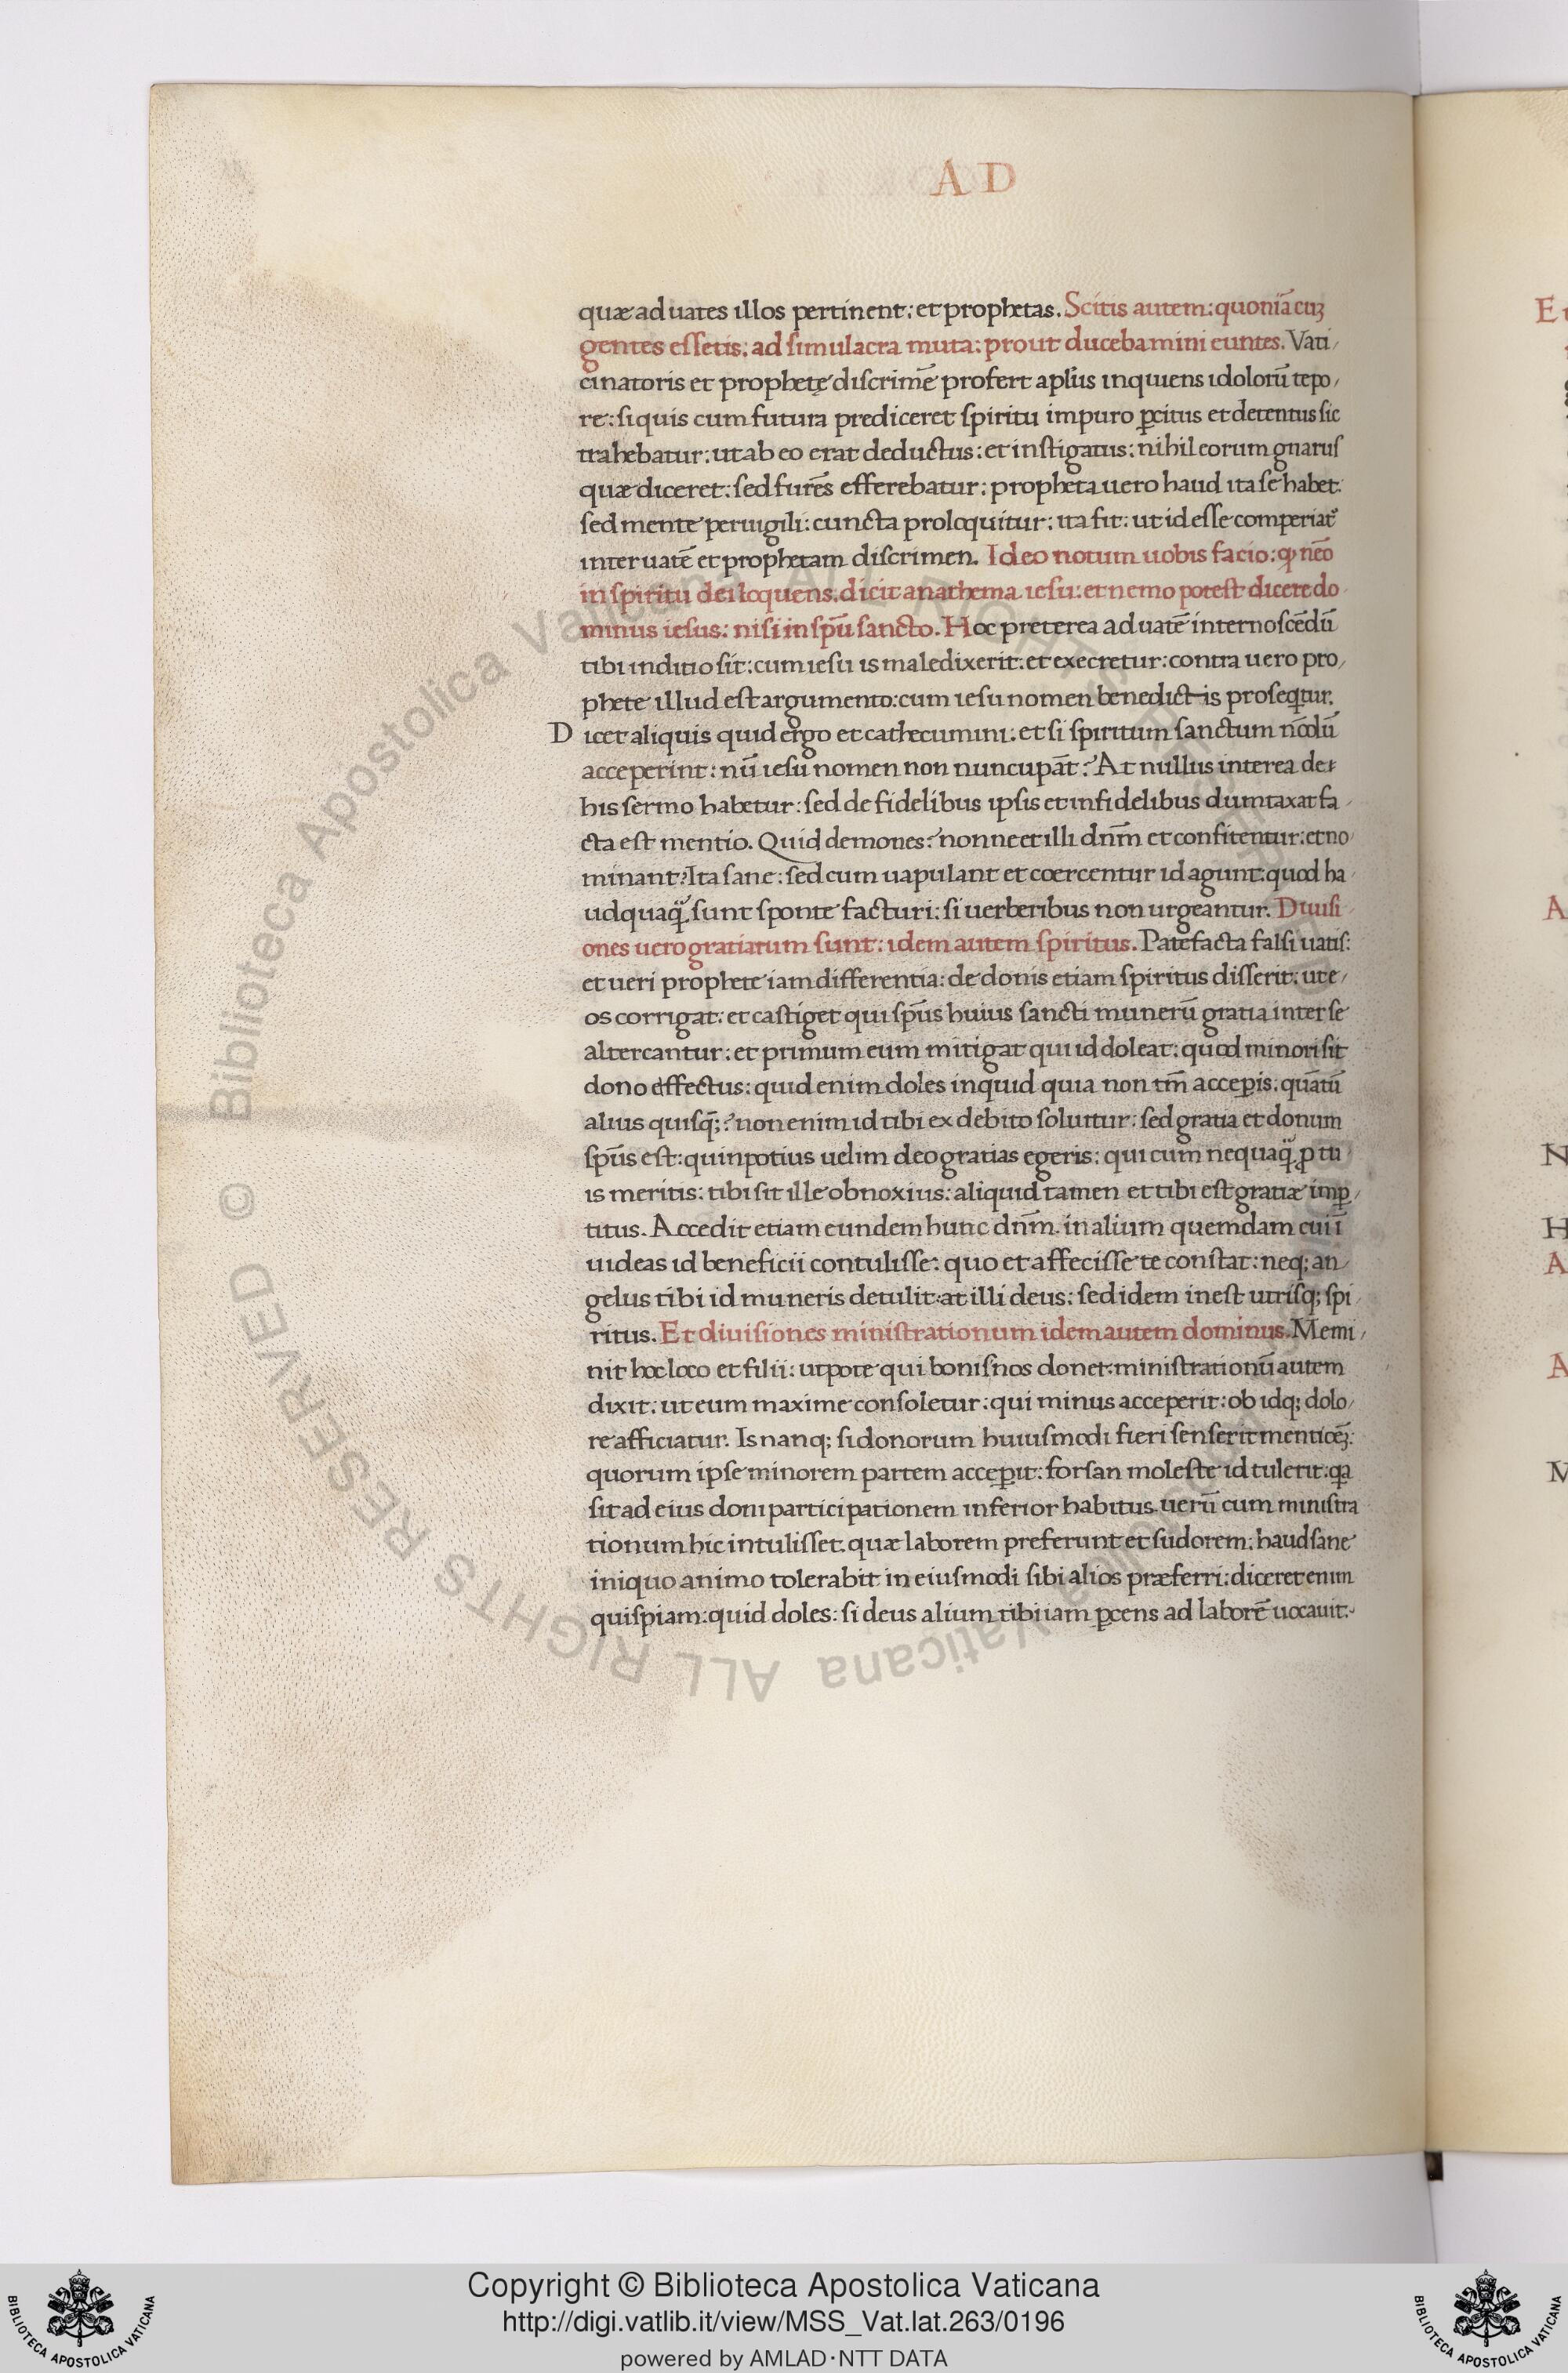 AD
quæ ad uates illos pertinent: et prophetas. Scitis autem: quoniā cuȝ
gentes essetis: ad simulacra muta: prout ducebamini euntes. Vati/
cinatoris et prophetę discrimē profert aplūs inquiens idolorū tepo/
re: si quis cum futura prediceret spiritu impuro ꝑcitus et detentus sic
trahebatur: ut ab eo erat deductus: et instigatus: nihil eorum gnarus
quæ diceret: sed furēs efferebatur: propheta uero haud ita se habet:
sed mente peruigili: cuncta proloquitur: ita fit: ut id esse comperiat᷑
inter uatē et prophetam discrimen. Ideo notum uobis facio: ꝙ nēo
in spiritu dei loquens. dicit anathema iesu: et nemo potest dicere do
minus iesus: nisi in spū sancto. Hoc preterea ad uatē internoscēdū
tibi inditio sit: cum iesu is maledixerit: et execretur: contra uero pro/
phete illud est argumento: cum iesu nomen benedictis proseqtur.
Dicet aliquis quid ergo et cathecumini: et si spiritum sanctum nōdū
acceperint: nū iesu nomen non nuncupāt? At nullus interea de
his sermo habetur: sed de fidelibus ipsis et infidelibus dumtaxat fa/
cta est mentio. Quid demones? nonne et illi dn̄m et confitentur: et no
minant? Ita sane: sed cum uapulant et coercentur id agunt: quod ha
udquaq̄ sunt sponte facturi: si uerberibus non urgeantur. Diuisi
ones uero gratiarum sunt: idem autem spiritus. Patefacta falsi uatis:
et ueri prophete iam differentia: de donis etiam spiritus disserit: ut e/
os corrigat: et castiget qui spūs huius sancti munerū gratia inter se
altercantur: et primum eum mitigat qui id doleat: quod minori sit
dono effectus: quid enim doles inquid quia non tm̄ acceꝑis: quātū
alius quisq̄;? non enim id tibi ex debito soluitur: sed gratia et donum
spūs est: quinpotius uelim deo gratias egeris: qui cum nequaq̄ ꝓ tu
is meritis: tibi sit ille obnoxius: aliquid tamen et tibi est gratiæ imꝑ/
titus. Accedit etiam eundem hunc dn̄m. in alium quemdam cui ī
uideas id beneficii contulisse: quo et affecisse te constat: neq; an/
gelus tibi id muneris detulit: at illi deus: sed idem inest utrisq; spi/
ritus. Et diuisiones ministrationum idem autem dominus. Memi/
nit hoc loco et filii: utpote qui bonis nos donet: ministrationū autem
dixit: ut eum maxime consoletur: qui minus acceperit: ob idq; dolo/
re afficiatur. Is nanq; si donorum huiusmodi fieri senserit mentioēȝ:
quorum ipse minorem partem acceꝑit: forsan moleste id tulerit: qa
sit ad eius doni participationem inferior habitus. uerū cum ministra
tionum hic intulisset. quæ laborem preferunt et sudorem: haud sane
iniquo animo tolerabit in eiusmodi sibi alios præferri: diceret enim
quispiam: quid doles: si deus alium tibi iam ꝑcens ad laborē uocauit:
© Biblioteca Apostolica Vaticana ALL RIGHTS RESERVED
Copyright © Biblioteca Apostolica Vaticana
http://digi.vatlib.it/view/MSS_Vat.lat.263/0196
powered by AMLAD·NTT DATA
BIBLIOTECA APOSTOLICA VATICANA
BIBLIOTECA APOSTOLICA VATICANA